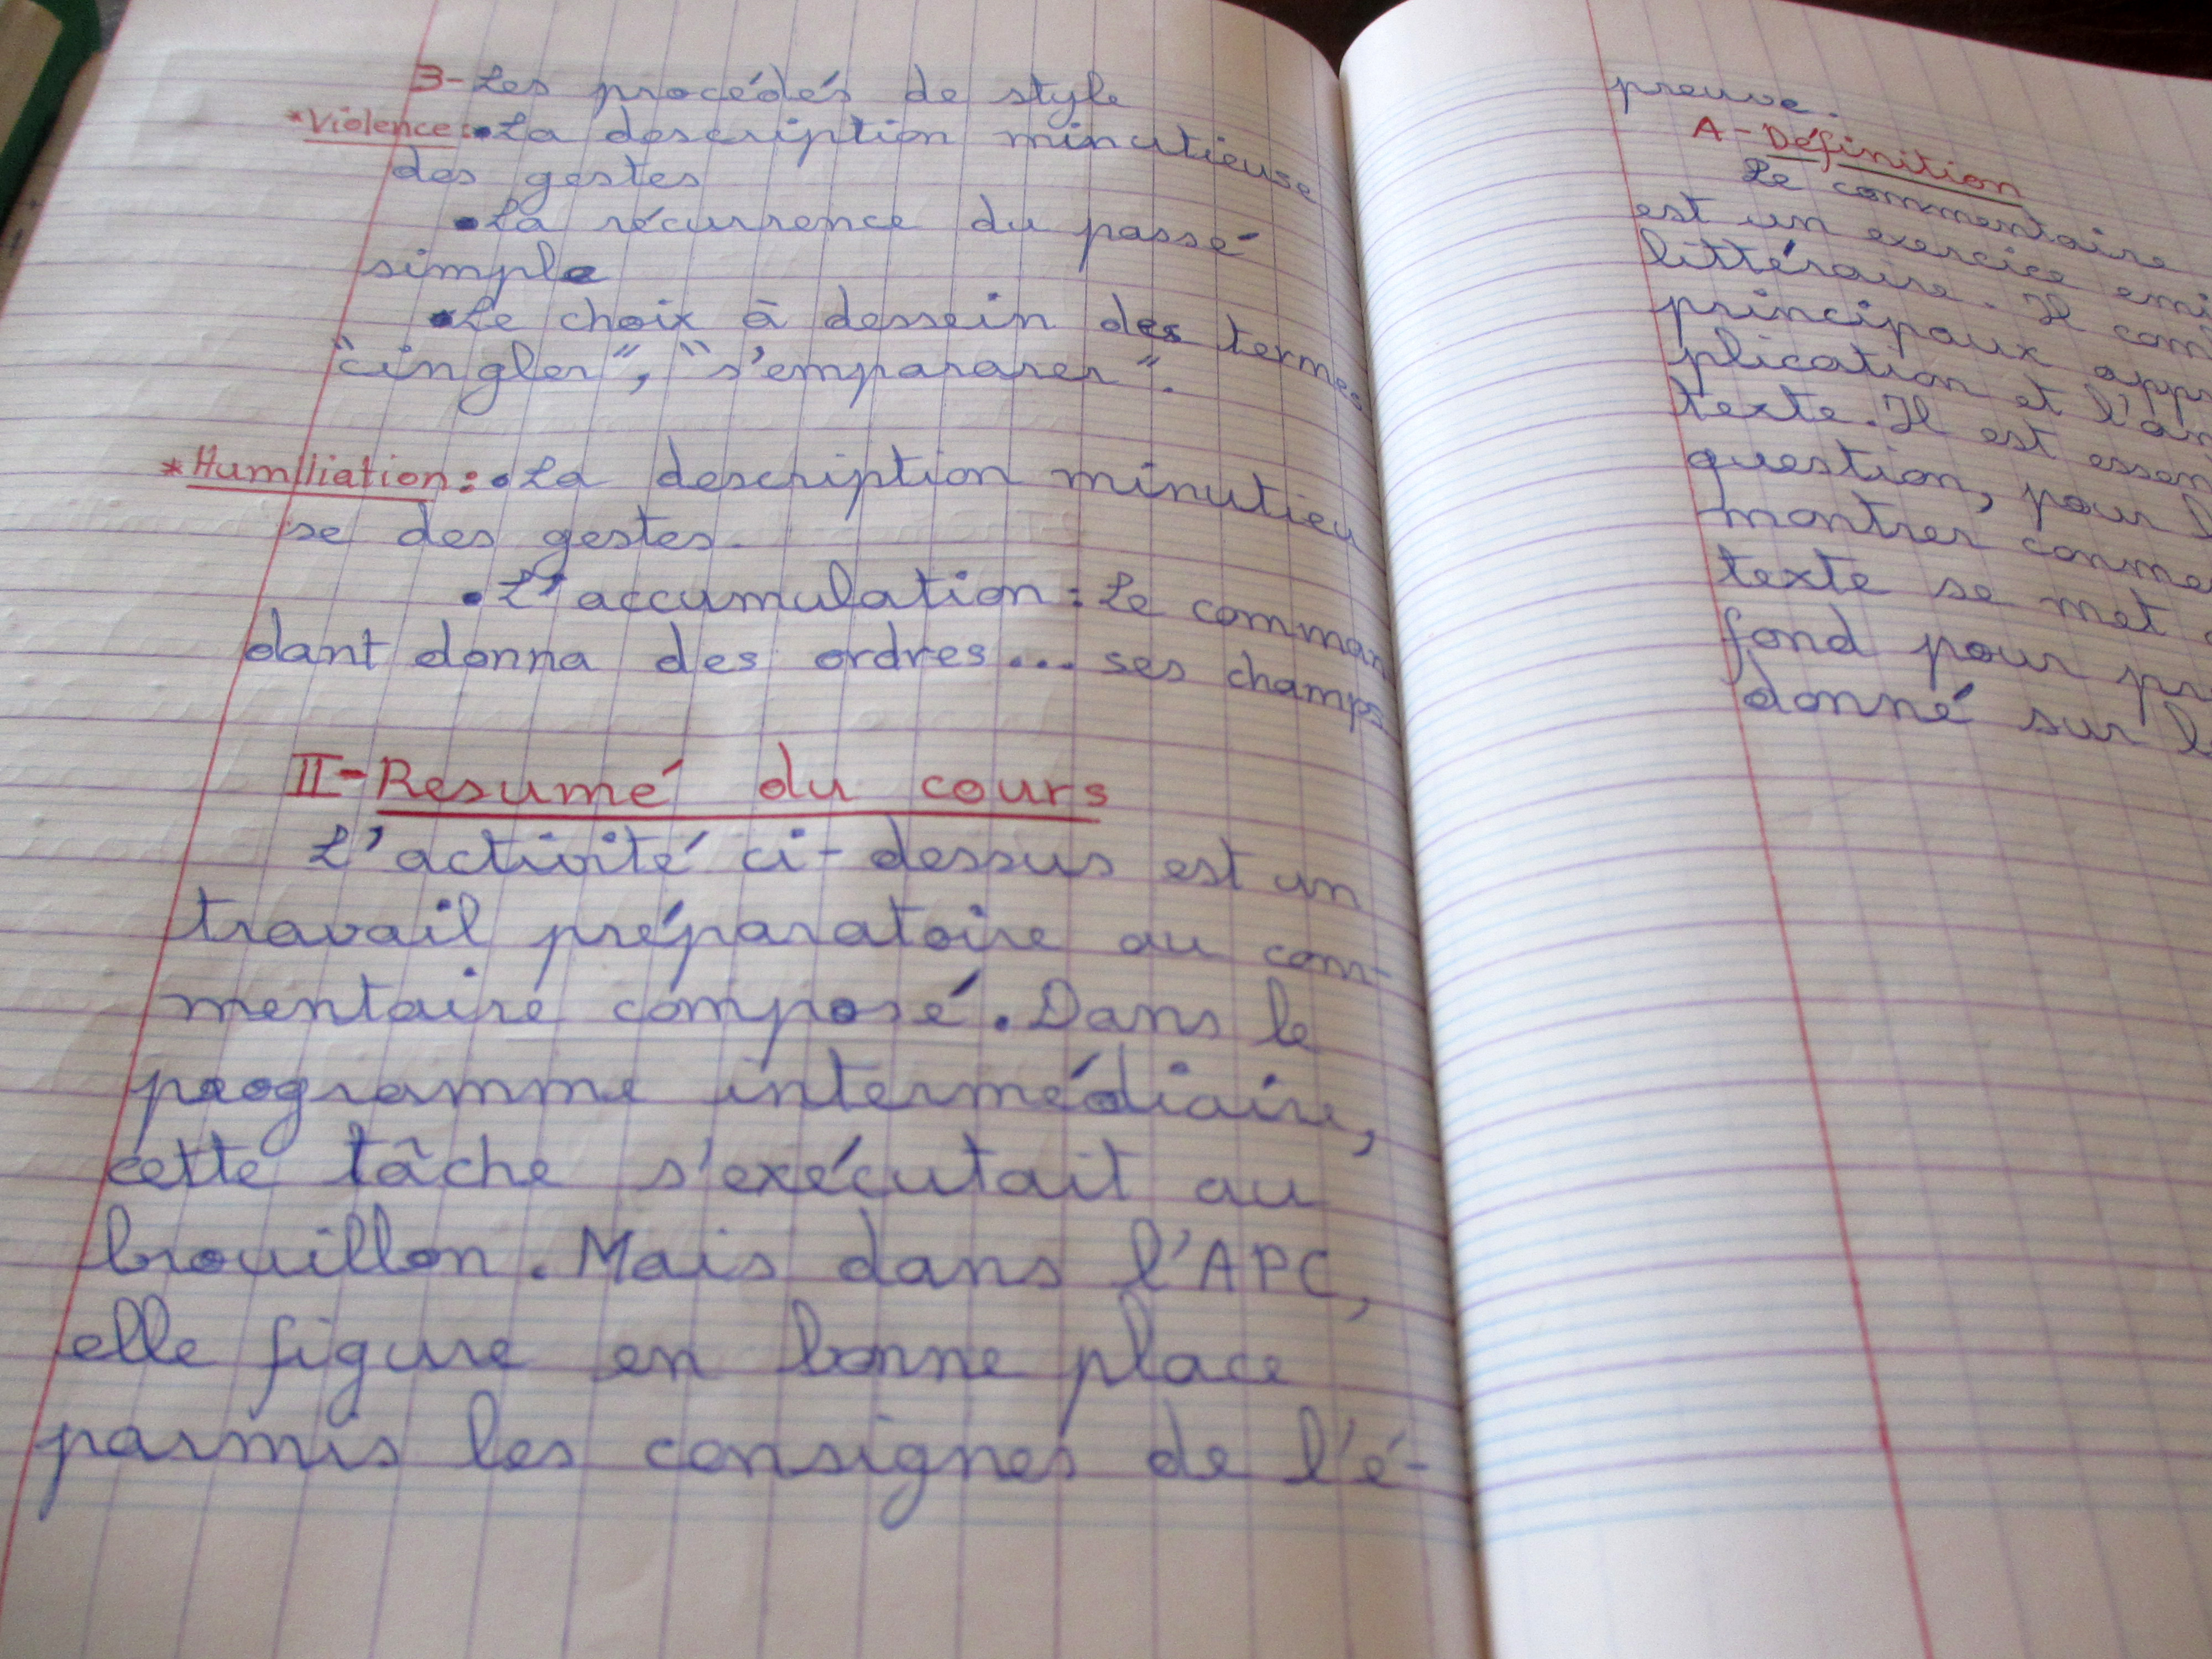 3-Les procédés de style
*Violence:•La description minutieuse
des gestes
•La récurrence du passé
simple
•Le choix à dessein des termes
"cingler", "s'empararer".
*Humiliation:•La description minutieu
se des gestes.
•L'accumulation: Le comman
dant donna des ordres... ses champs.
II-Resumé du cours
L'activité ci-dessus est un
travail préparatoire au com-
mentaire composé. Dans le
programme intermédiaire,
cette tâche s'exécutait au
brouillon. Mais dans l'APC,
elle figure en bonne place
parmis les consignes de l'é-
preuve.
A-Définition
Le commentaire
est un exercice emi
littéraire. Il com
principaux appr
plication et l'an
texte. Il est essen
question, pour l
montrer comme
texte se met
fond pour pr
donné sur l